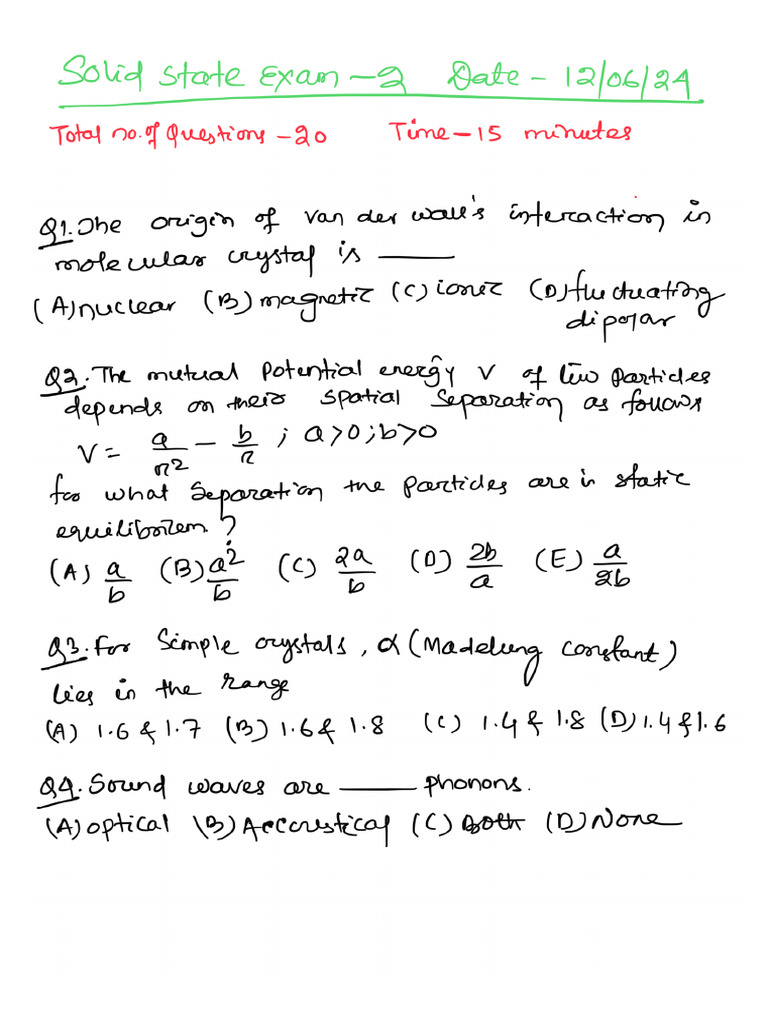 Solid State Exam - 2 Date - 12/06/24
Total no. of Questions - 20 Time - 15 minutes
Q1. The origin of van der wall's interaction in
molecular crystal is ____
(A) nuclear (B) magnetic (C) ionic (D) fluctuating
dipolar
Q2. The mutual potential energy V of two particles
depends on their spatial separation as follows
V = a/r² - b/r ; a>0 ; b>0
for what separation the particles are in static
equilibrium?
(A) a/b (B) a²/b (C) 2a/b (D) 2b/a (E) a/2b
Q3. For simple crystals, α (Madelung constant)
lies in the range
(A) 1.6 & 1.7 (B) 1.6 & 1.8 (C) 1.4 & 1.8 (D) 1.4 & 1.6
Q4. Sound waves are ____ phonons.
(A) optical (B) Accoustical (C) Both (D) None